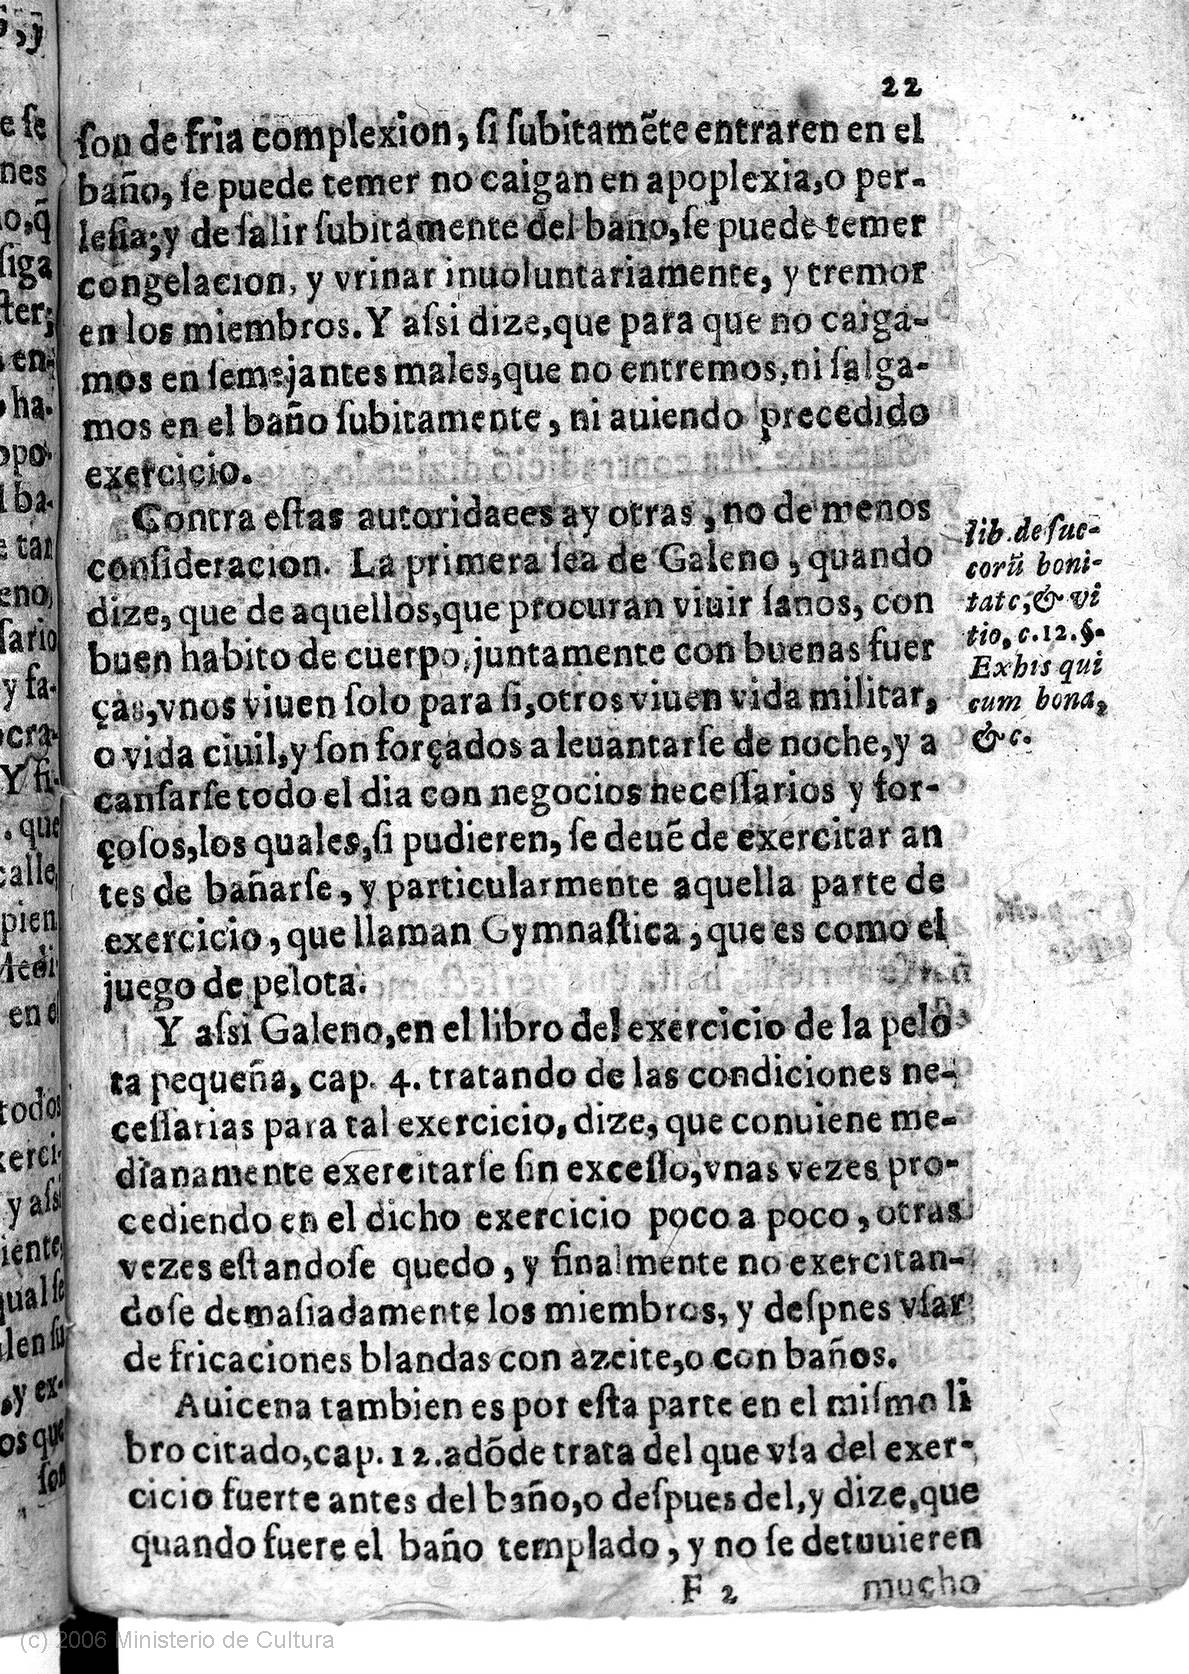 22
ſon de fria complexion, ſi ſubitamẽte entraren en el
baño, ſe puede temer no caigan en apoplexia, o per-
leſia; y de ſalir ſubitamente del baño, ſe puede temer
congelacion, y vrinar inuoluntariamente, y tremor
en los miembros. Y aſsi dize, que para que no caiga-
mos en ſemejantes males, que no entremos, ni ſalga-
mos en el baño ſubitamente, ni auiendo precedido
exercicio.
Contra eſtas autoridaees ay otras, no de menos
conſideracion. La primera ſea de Galeno, quando
dize, que de aquellos, que procuran viuir ſanos, con
buen habito de cuerpo, juntamente con buenas fuer
ças, vnos viuen ſolo para ſi, otros viuen vida militar,
o vida ciuil, y ſon forçados a leuantarſe de noche, y a
canſarſe todo el dia con negocios neceſſarios y for-
çoſos, los quales, ſi pudieren, ſe deuẽ de exercitar an
tes de bañarſe, y particularmente aquella parte de
exercicio, que llaman Gymnaſtica, que es como el
juego de pelota.
Y aſsi Galeno, en el libro del exercicio de la pelo
ta pequeña, cap. 4. tratando de las condiciones ne-
ceſſarias para tal exercicio, dize, que conuiene me-
dianamente exercitarſe ſin exceſſo, vnas vezes pro-
cediendo en el dicho exercicio poco a poco, otras
vezes eſtandoſe quedo, y finalmente no exercitan-
doſe demaſiadamente los miembros, y deſpnes vſar
de fricaciones blandas con azeite, o con baños.
Auicena tambien es por eſta parte en el miſmo li
bro citado, cap. 12. adõde trata del que vſa del exer-
cicio fuerte antes del baño, o deſpues del, y dize, que
quando fuere el baño templado, y no ſe detuuieren
F 2 mucho
lib. de ſuc-
corũ boni-
tate, & vi
tio, c. 12. §.
Ex his qui
cum bona,
&c.
(c) 2006 Ministerio de Cultura